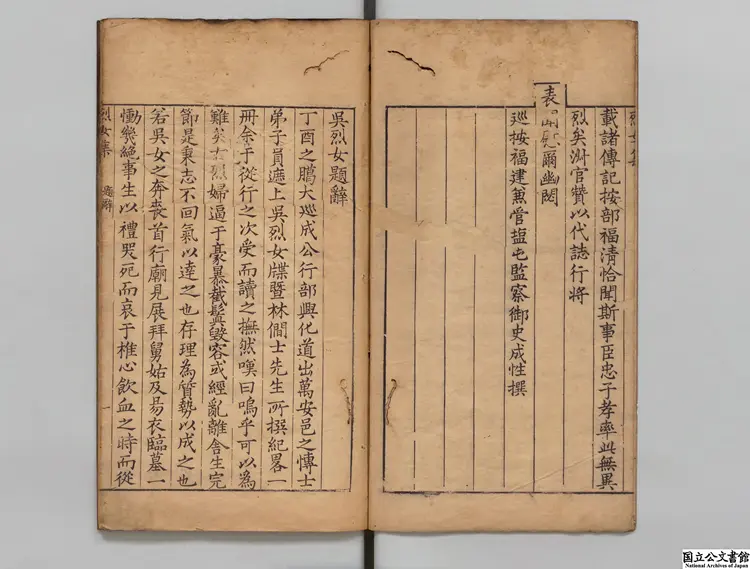 載諸傳記按部福清恰聞斯事臣忠子孝率此無異
烈矣洲官贊以代誌行將
表聞慰爾幽閟
巡按福建兼管塩屯監察御史成性撰
吳烈女題辭
丁酉之臈大巡成公行部興化道出萬安邑之博士
弟子員遮上吳烈女牒暨林僴士先生所撰紀畧一
冊余于從行之次受而讀之撫然嘆曰嗚乎可以為
難矣古烈婦逼于豪暴截髲毀容或經亂離舍生完
節是秉志不回氣以達之也存理為質勢以成之也
若吳女之奔喪首行廟見展拜舅姑及昜衣臨墓一
慟幾絕事生以禮哭死而哀于椎心飲血之時而從
烈女集 題辭 一
国立公文書館
National Archives of Japan